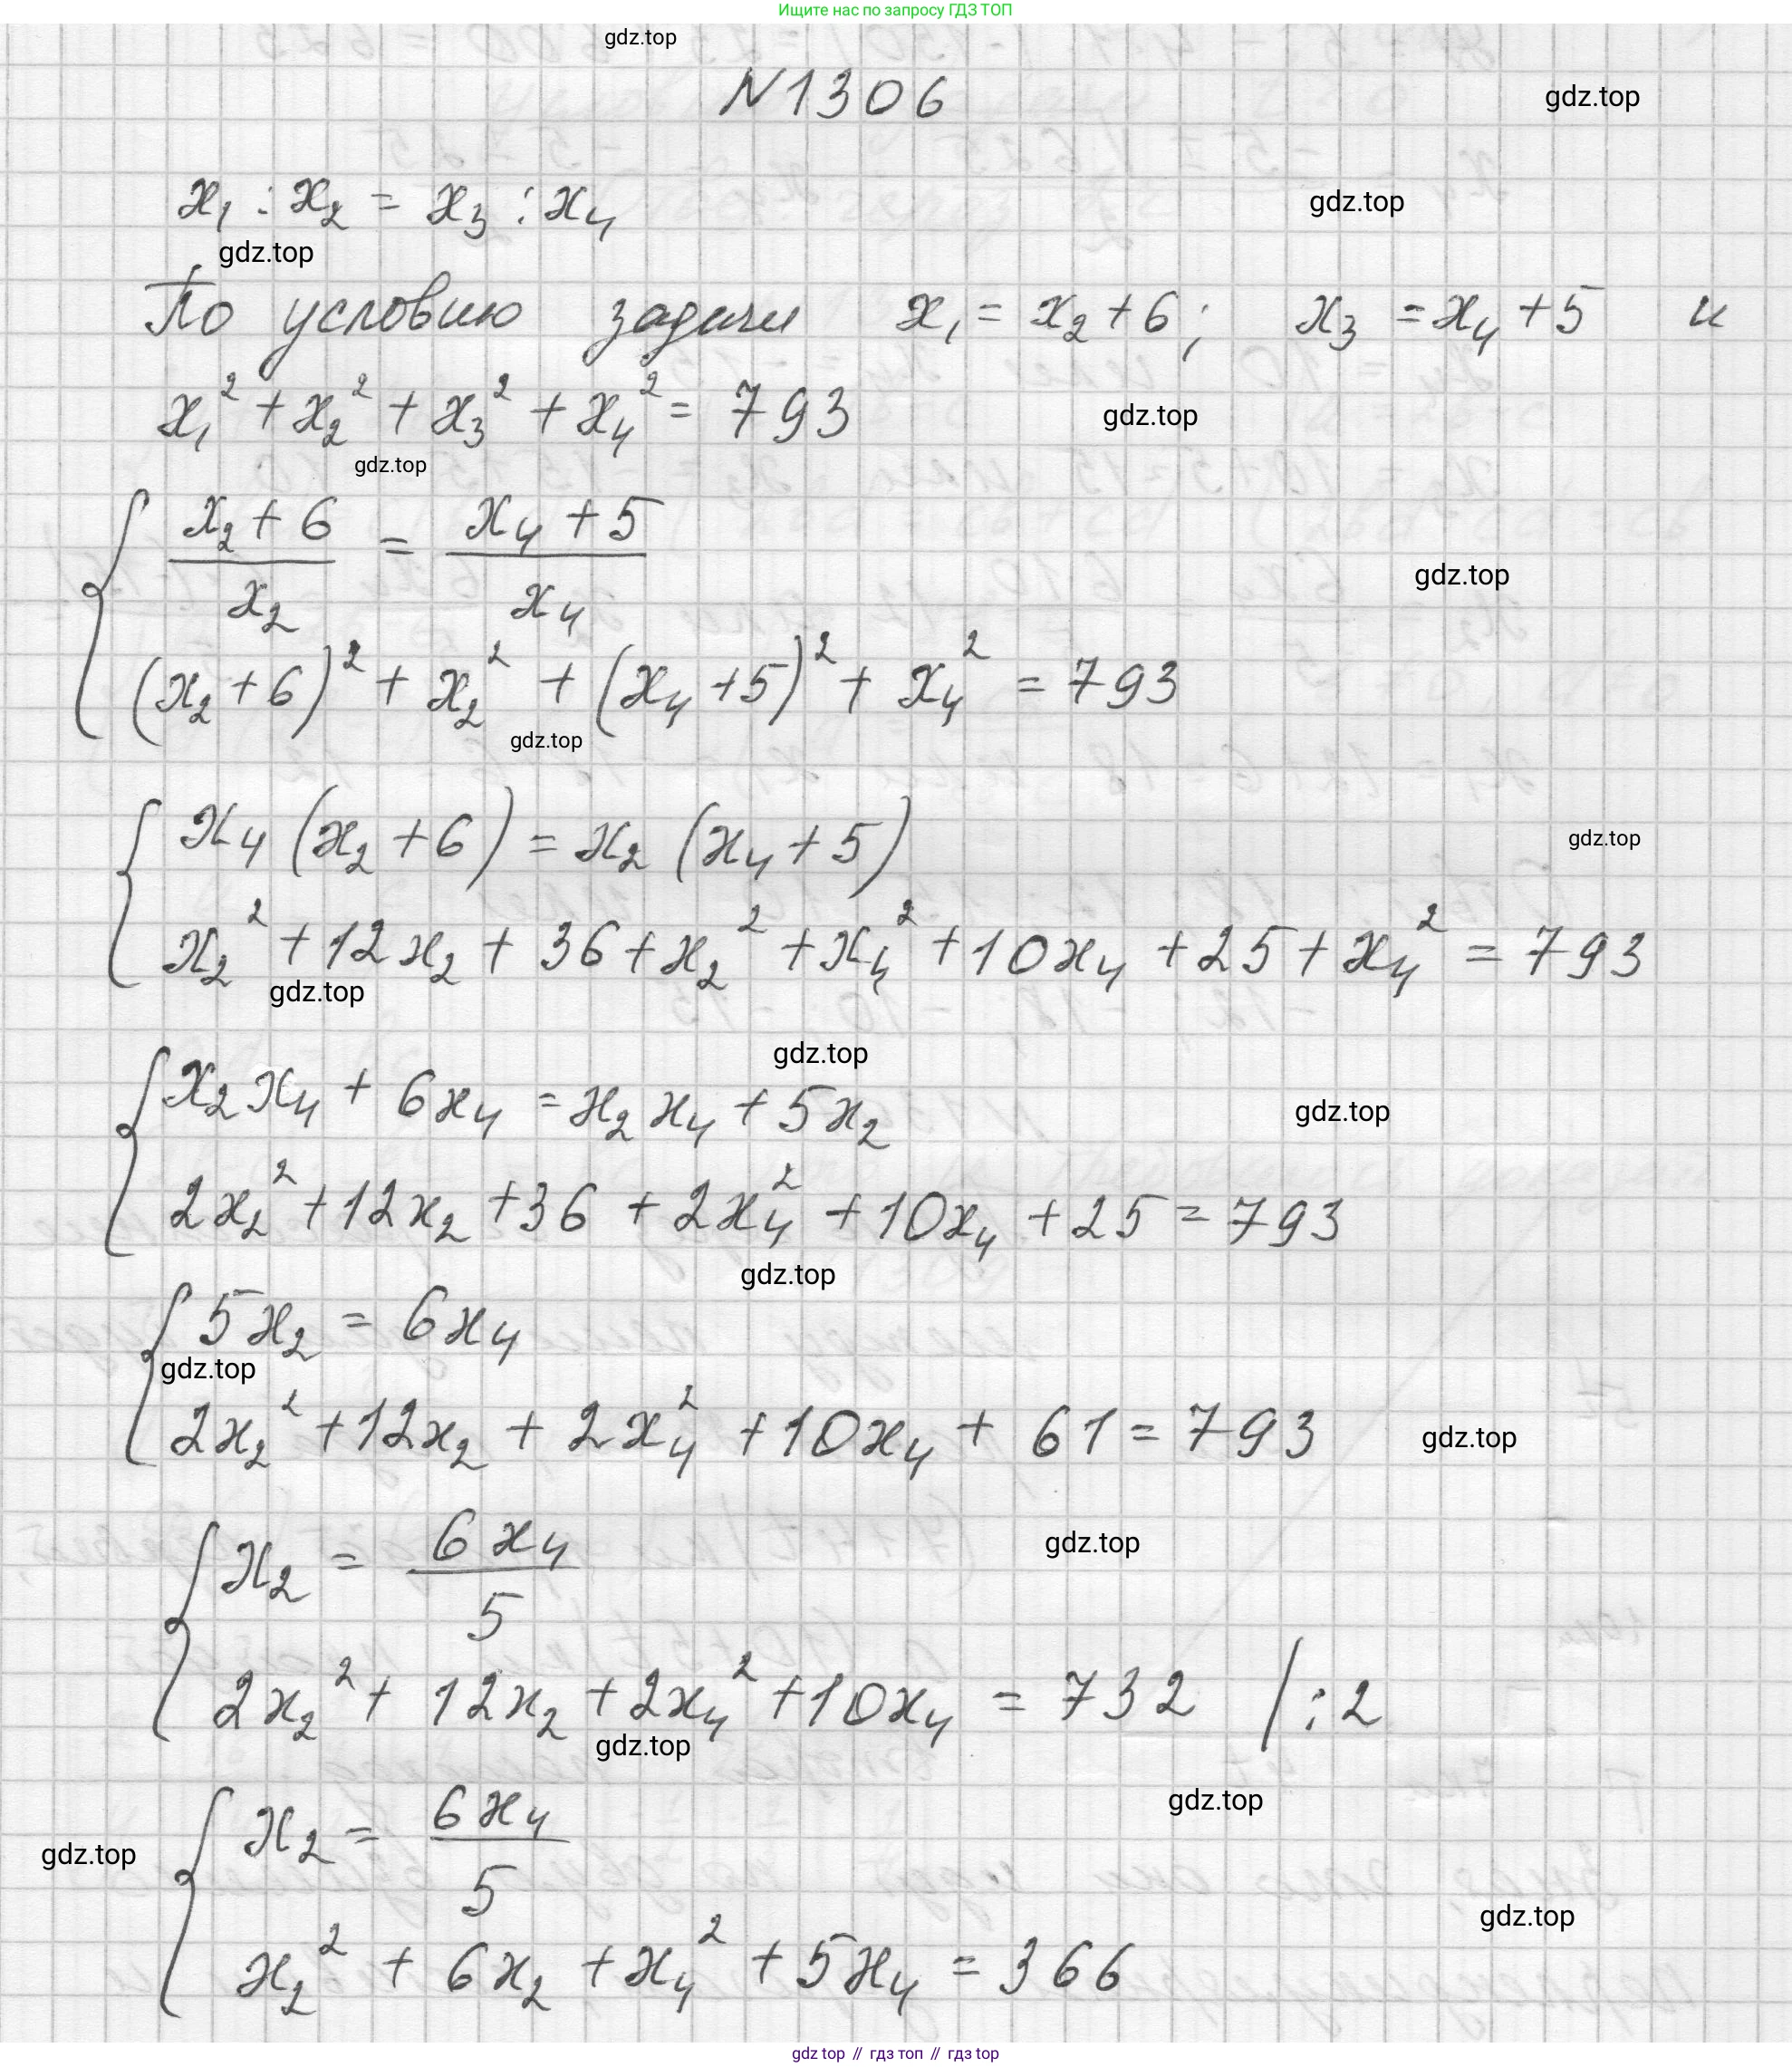 Ищите нас по запросу ГДЗ ТОП
gdz.top
N1306
gdz.top
x₁ : x₂ = x₃ : x₄
gdz.top
gdz.top
По условию задачи x₁ = x₂ + 6; x₃ = x₄ + 5 и
x₁² + x₂² + x₃² + x₄² = 793
gdz.top
gdz.top
{ (x₂ + 6)/x₂ = (x₄ + 5)/x₄
gdz.top
(x₂ + 6)² + x₂² + (x₄ + 5)² + x₄² = 793
gdz.top
{ x₄ (x₂ + 6) = x₂ (x₄ + 5)
gdz.top
x₂² + 12x₂ + 36 + x₂² + x₄² + 10x₄ + 25 + x₄² = 793
gdz.top
gdz.top
{ x₂x₄ + 6x₄ = x₂x₄ + 5x₂
gdz.top
2x₂² + 12x₂ + 36 + 2x₄² + 10x₄ + 25 = 793
gdz.top
{ 5x₂ = 6x₄
gdz.top
2x₂² + 12x₂ + 2x₄² + 10x₄ + 61 = 793
gdz.top
{ x₂ = 6x₄/5
gdz.top
2x₂² + 12x₂ + 2x₄² + 10x₄ = 732 | : 2
gdz.top
gdz.top
{ x₂ = 6x₄/5
gdz.top
gdz.top
x₂² + 6x₂ + x₄² + 5x₄ = 366
gdz top // гдз топ // гдз top